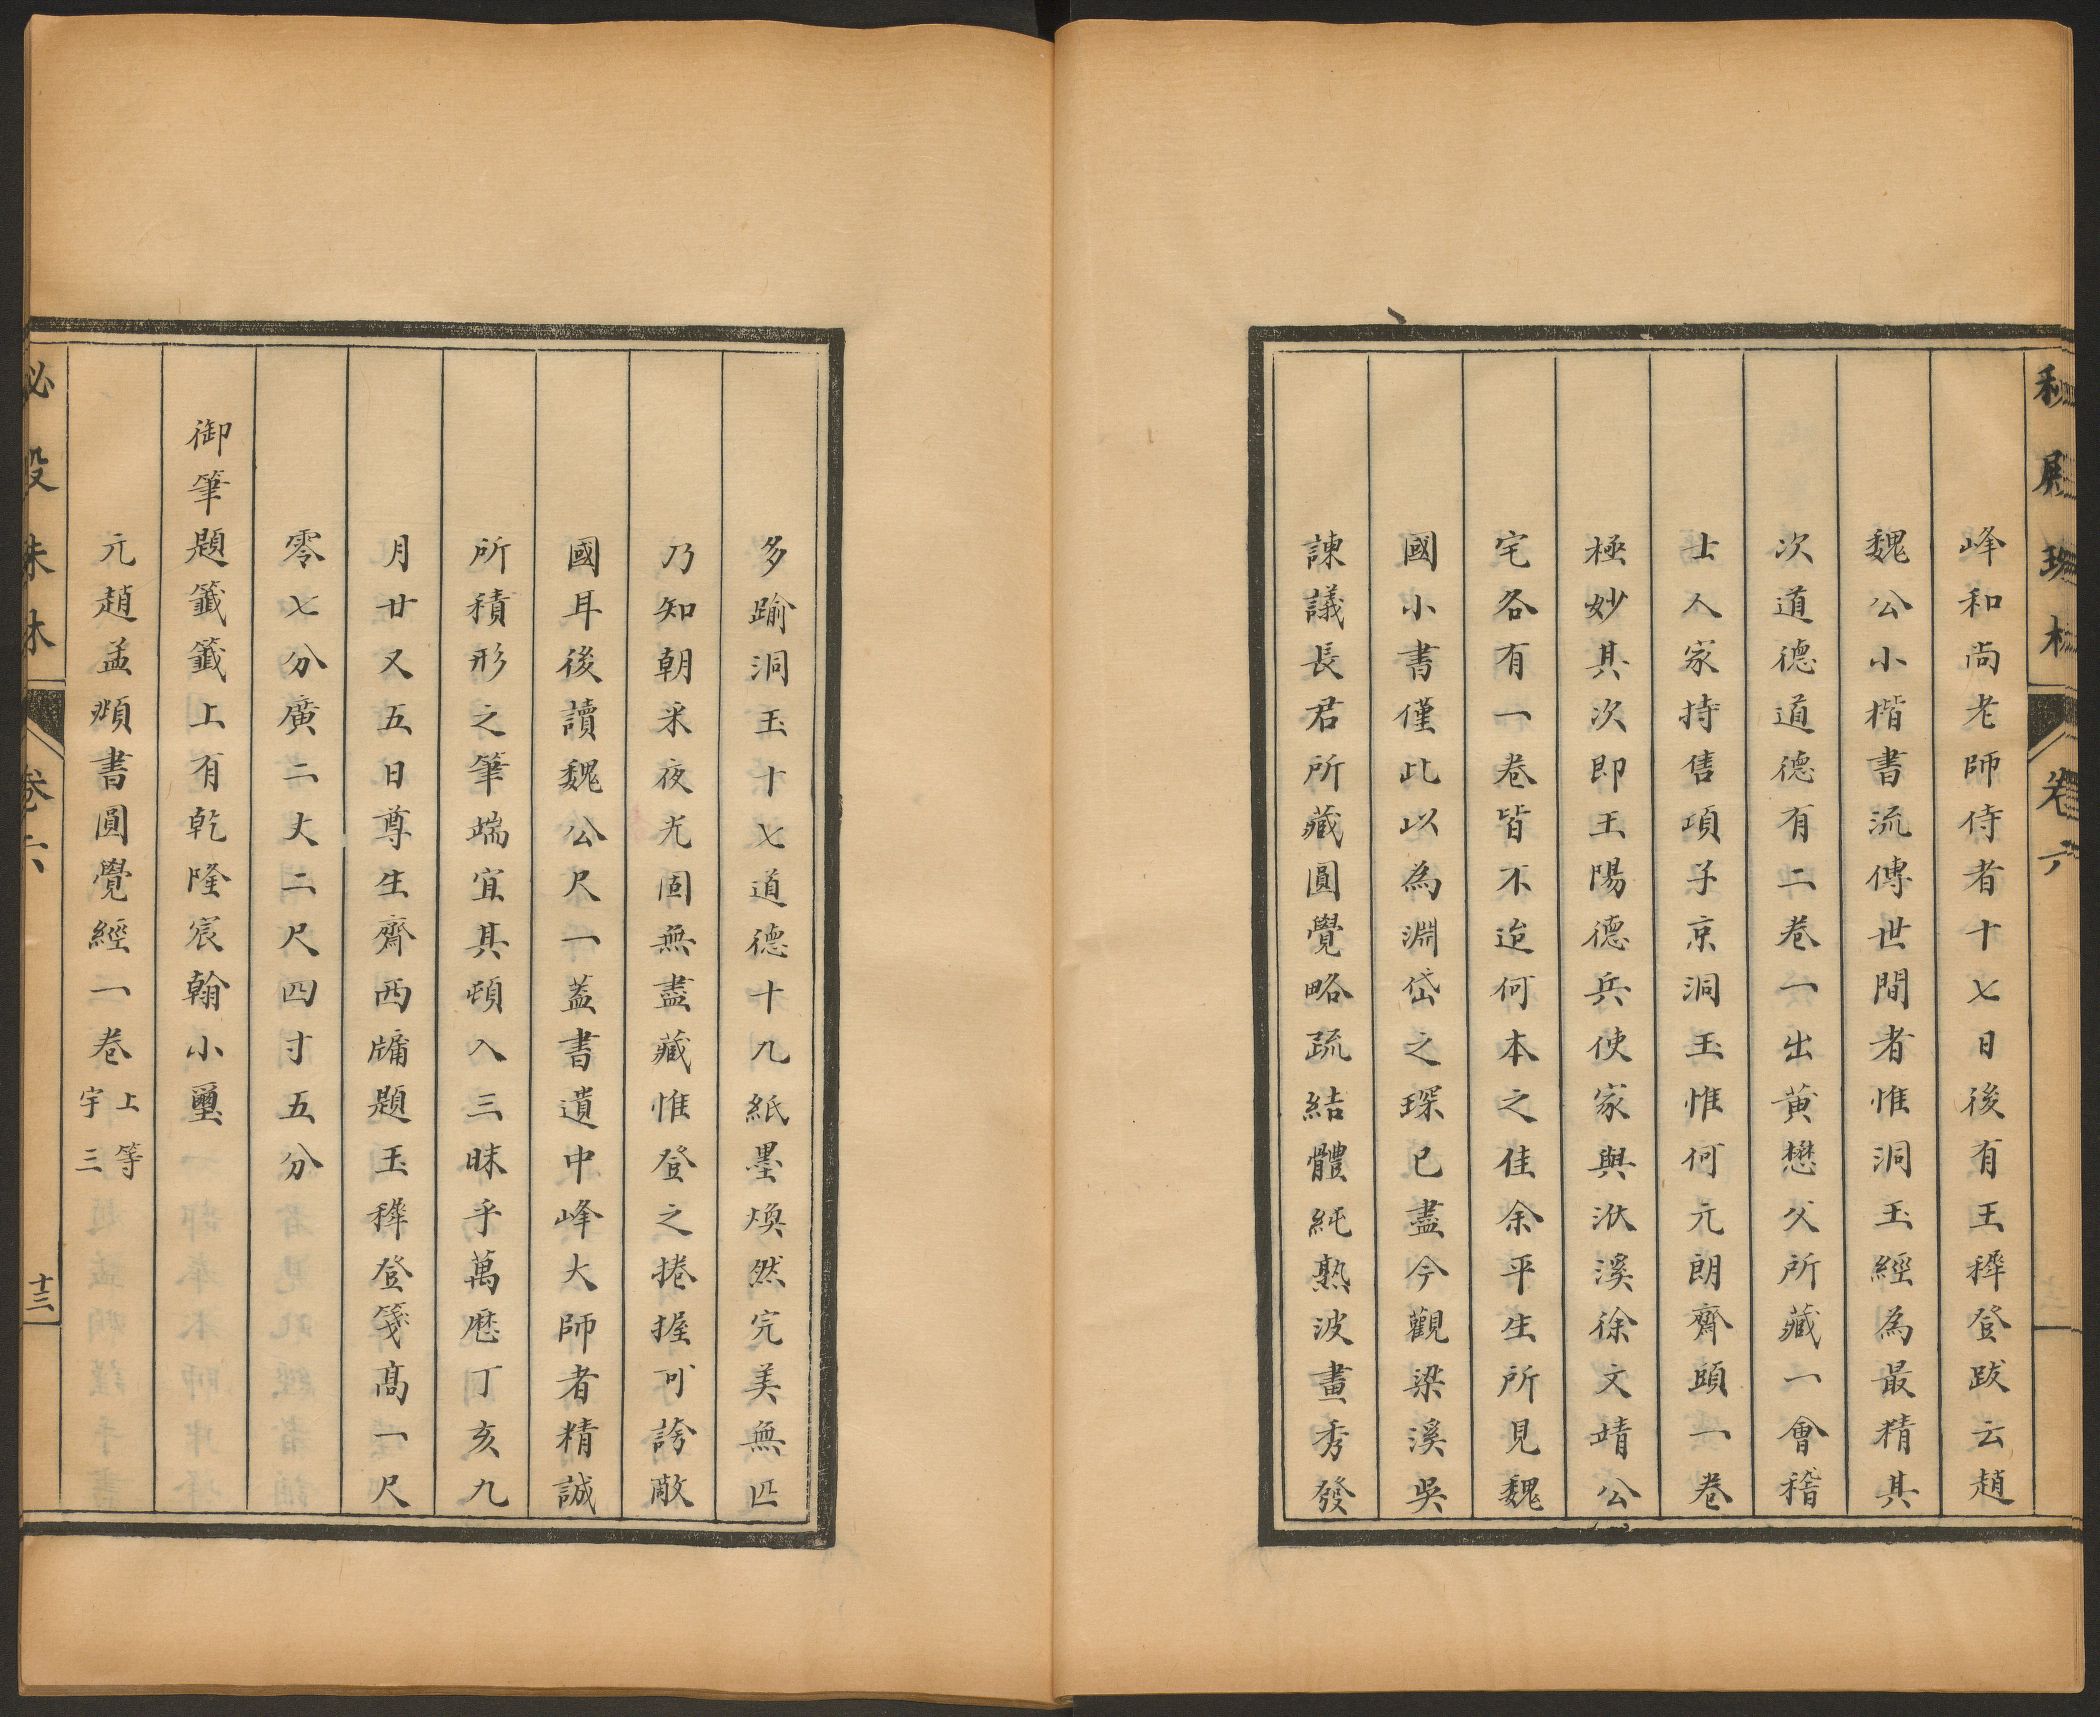 秘殿珠林 卷六
峰和尚老師侍者十七日後有王穉登跋云趙
魏公小楷書流傳世間者惟洞玉經為最精其
次道德道德有二卷一出黃懋父所藏一會稽
士人家持售項子京洞玉惟何元朗齋頭一卷
極妙其次即王陽德兵使家與洑溪徐文靖公
宅各有一卷皆不迨何本之佳余平生所見魏
國小書僅此以為淵岱之琛已盡今觀梁溪吳
諫議長君所藏圓覺略疏結體純熟波畫秀發
多踰洞玉十七道德十九紙墨煥然完美無匹
乃知朝采夜光固無盡藏惟登之捲握可誇敵
國耳後讀魏公尺一蓋書遺中峰大師者精誠
所積形之筆端宜其頓入三昧乎萬歷丁亥九
月廿又五日尊生齋西牖題玉穉登箋高一尺
零七分廣二丈二尺四寸五分
御筆題籤籤上有乾隆宸翰小璽
元趙孟頫書圓覺經一卷上等宇三
秘殿珠林 卷六 十三